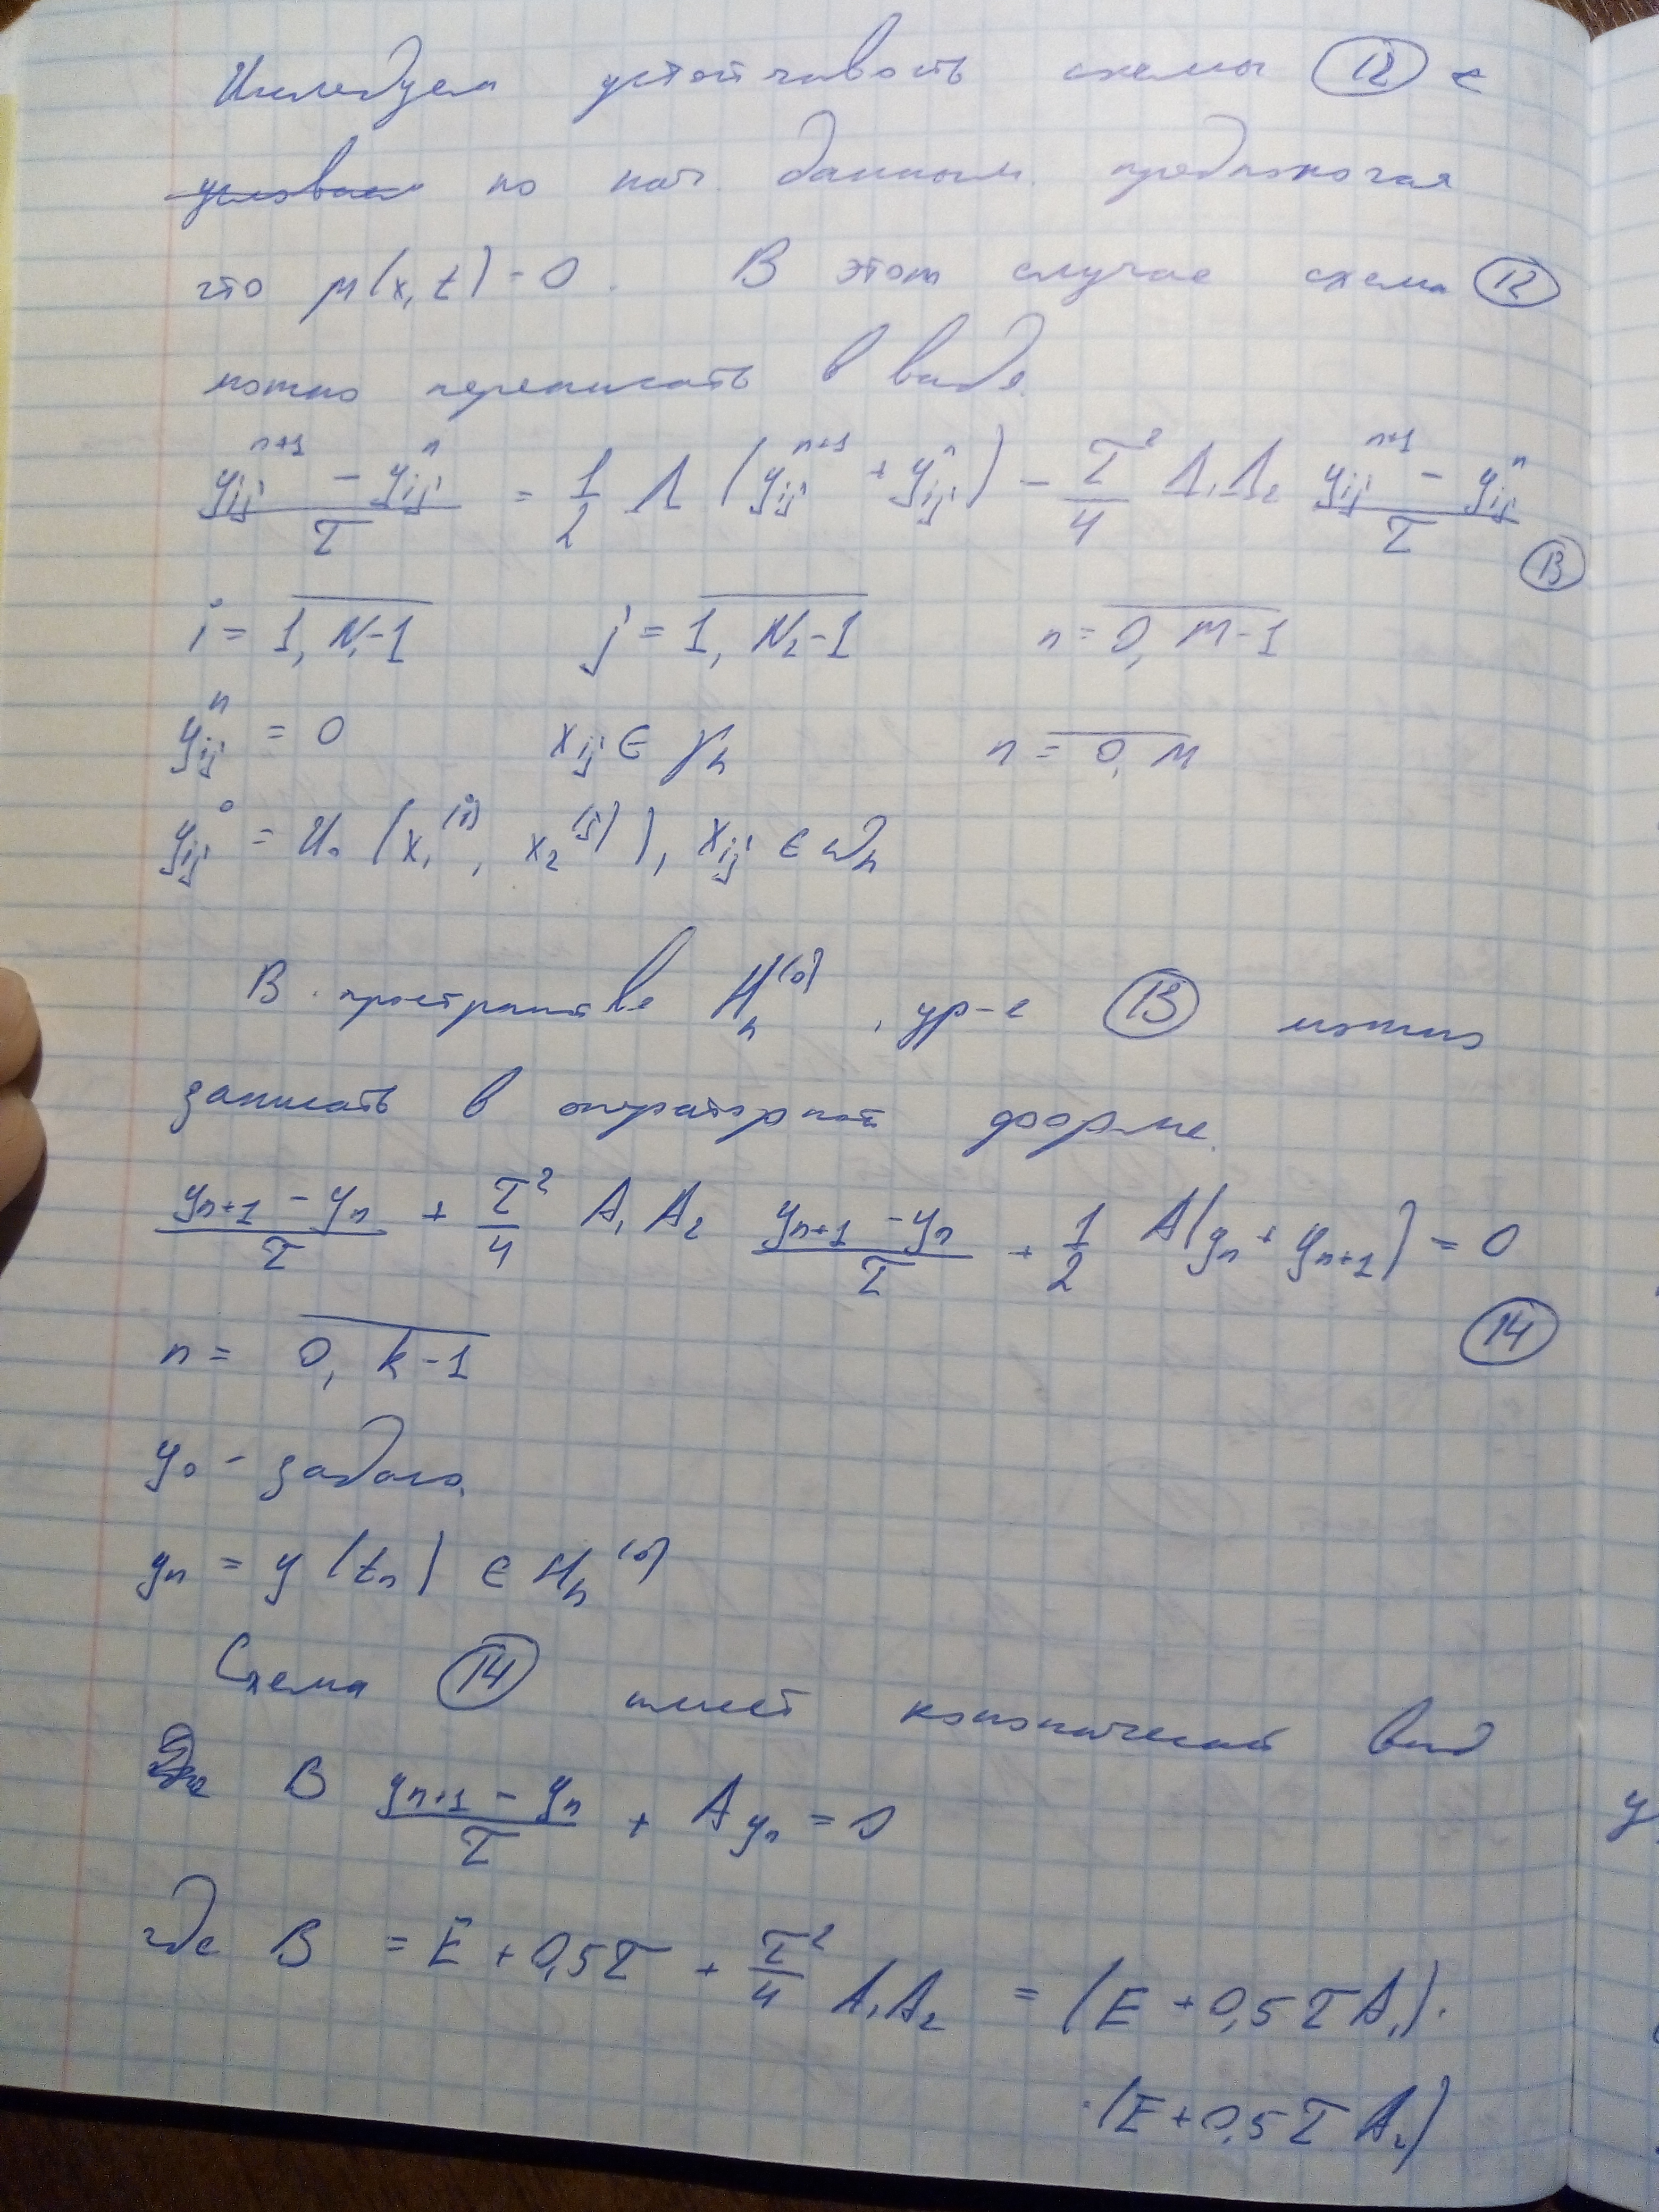 Исследуем устойчивость схемы (12) с
условием по нач. данным. предполагая
что μ(x, t) = 0. В этом случае схема (12)
можно переписать в виде.
(yᵢⱼⁿ⁺¹ − yᵢⱼⁿ)/τ = 1/2 Λ (yᵢⱼⁿ⁺¹ + yᵢⱼⁿ) − τ²/4 Λ₁Λ₂ (yᵢⱼⁿ⁺¹ − yᵢⱼⁿ)/τ
(13)
i = 1, N₁-1 j = 1, N₂-1 n = 0, M-1
yᵢⱼⁿ = 0 xᵢⱼ ∈ γₕ n = 0, M
yᵢⱼ⁰ = u₀ (x₁⁽ⁱ⁾, x₂⁽ʲ⁾), xᵢⱼ ∈ ωₕ
В пространстве Hₕ⁽⁰⁾, ур-е (13) можно
записать в операторной форме.
(yₙ₊₁ − yₙ)/τ + τ²/4 A₁A₂ (yₙ₊₁ − yₙ)/τ + 1/2 A(yₙ + yₙ₊₁) = 0
(14)
n = 0, k-1
y₀ - задано.
yₙ = y(tₙ) ∈ Hₕ⁽⁰⁾
Схема (14) имеет канонический вид
B (yₙ₊₁ − yₙ)/τ + Ayₙ = 0
где B = E + 0,5τ + τ²/4 A₁A₂ = (E + 0,5τA₁)·
·(E + 0,5τA₂)